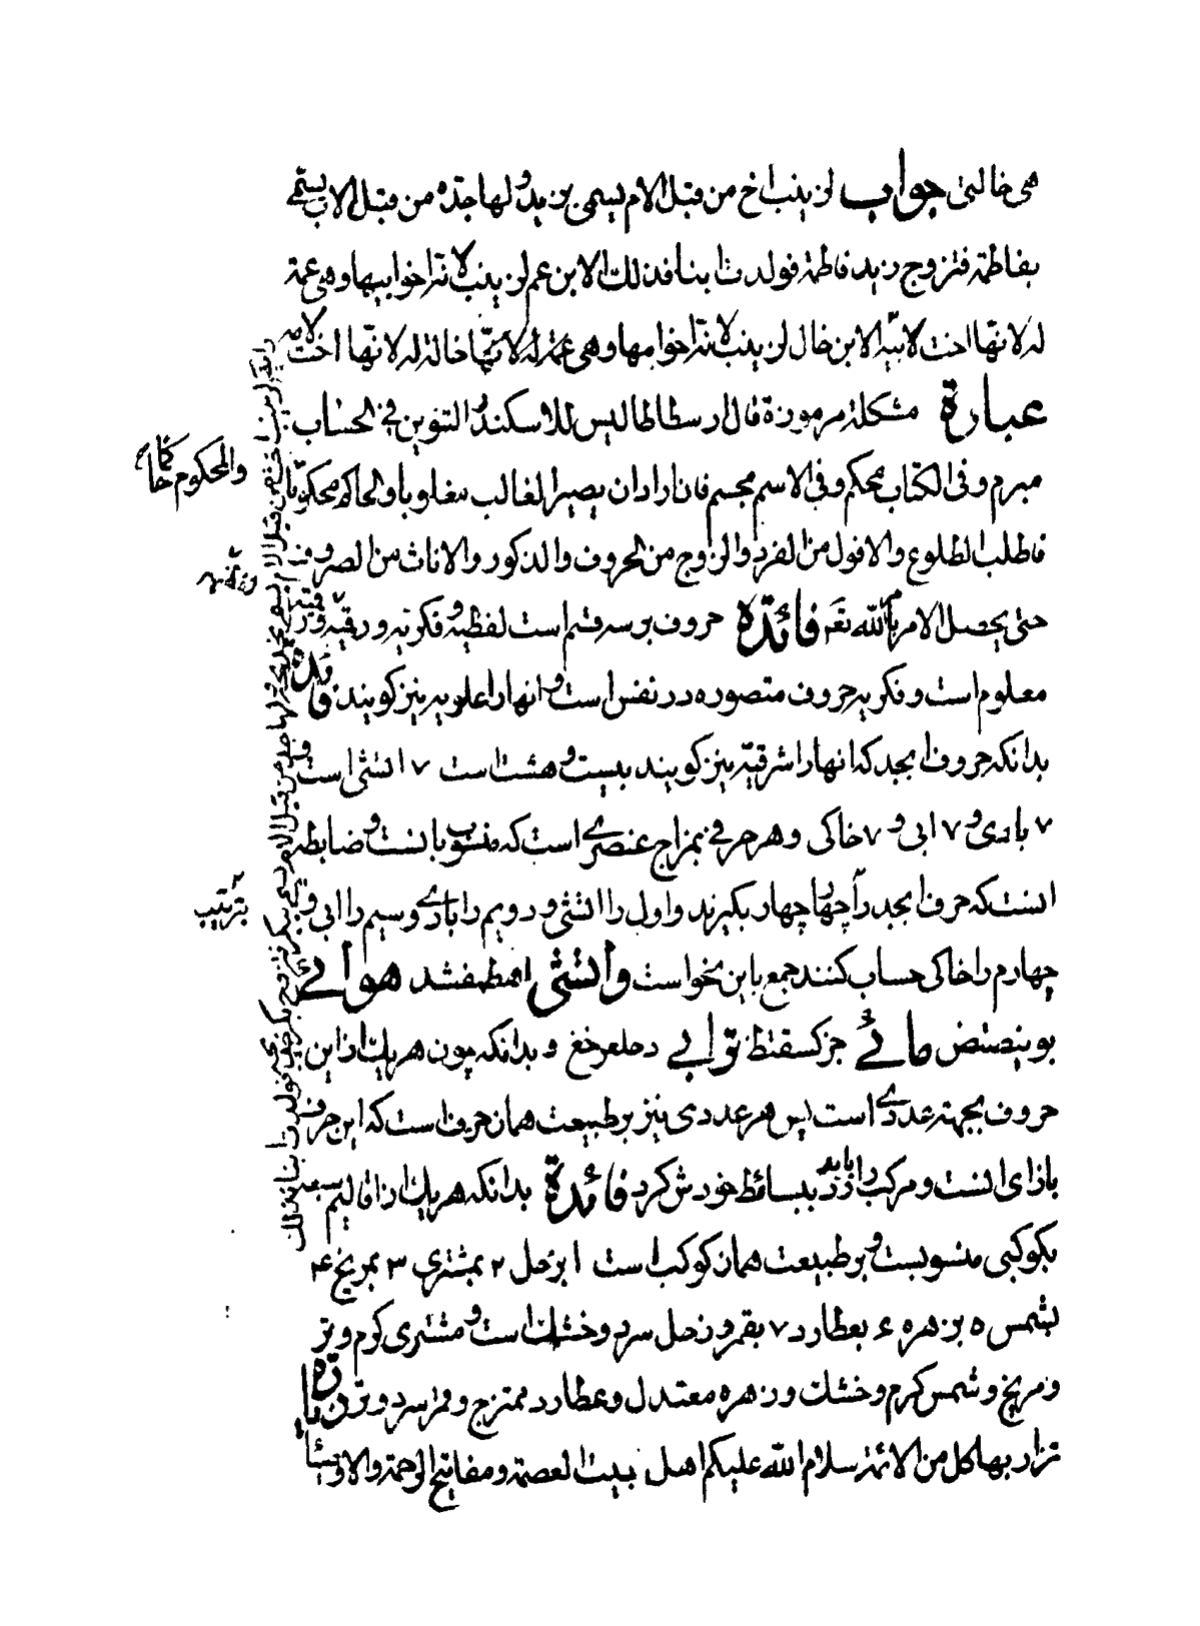 هی خالتی جواب لزینب اخ من قبل الام یسمی بزید ولها جدة من قبل الاب یسمی
بفاطمة فتزوج زید فاطمة فولدت ابنا فذلك الابن عم لزینب لانه اخو ابیها وهی عمة
له لانها اخت لابیه الابن خال لزینب لانه اخو امها وهی عمة له لانها خالة له لانها اخت لامه
عبارة مشکلة مرموزة قال ارسطاطالیس للاسکندر التنوین فی الحساب
مبرم وفی الکتاب محکم وفی الاسم مجسم فان اراد ان یصیر الغالب مغلوبا والحاکم محکوما
والمحکوم حاکما
فاطلب الطلوع والافول من الفرد والزوج من الحروف والذکور والاناث من الصروف
حتی یحصل الامر بالله تعه فائدة حروف بر سه قسم است لفظیه و فکریه و رقمیه ورقمیه
معلوم است و فکریه حروف متصوره در نفس است و انها را علویه نیز کویند فائده
بدانکه حروف ابجد که انها را شرقیه نیز کویند بیست و هشت است ۷ اتشی است و
۷ بادی و ۷ ابی و ۷ خاکی و هر حرفی بمزاج عنصری است که منسوب بانست و ضابطه
انست که حرف ابجد را چهار چهار بکیرند و اول را اتشی و دویم را بادی و سیم را ابی و
بترتیب
چهارم را خاکی حساب کنند جمع باین نحو است واتشی اهطمفشد هوائی
بوینصتض مائی جزکسقثظ ترابی دحلعرخغ و بدانکه چون هر یك از این
حروف بجهته عددی است پس هر عددی نیز بر طبیعت همان حرف است که این حرف
بازای انست و مرکب را باید رد ببسائط خودش کرد فائدة بدانکه هر یك از اقالیم سبعه
بکوکبی منسوبست و بر طبیعت همان کوکب است ۱ بزحل ۲ بمشتری ۳ بمریخ ۴
بشمس ۵ بزهره ۶ بعطارد ۷ بقمر و زحل سرد و خشك است و مشتری کرم و تر
و مریخ و شمس کرم و خشك و زهره معتدل و عطارد ممتزج و قمر سرد و تر
تزار بها کل من الائمة سلام الله علیکم اهل بیت العصمة ومفاتیح الرحمة والاوصیاء